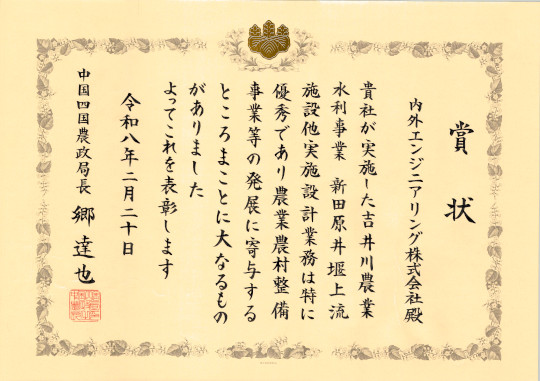 賞状
内外エンジニアリング株式会社殿
貴社が実施した吉井川農業
水利事業 新田原井堰上流
施設他実施設計業務は特に
優秀であり農業農村整備
事業等の発展に寄与する
ところまことに大なるもの
がありました
よってこれを表彰します
令和八年二月二十日
中国四国農政局長 郷達也